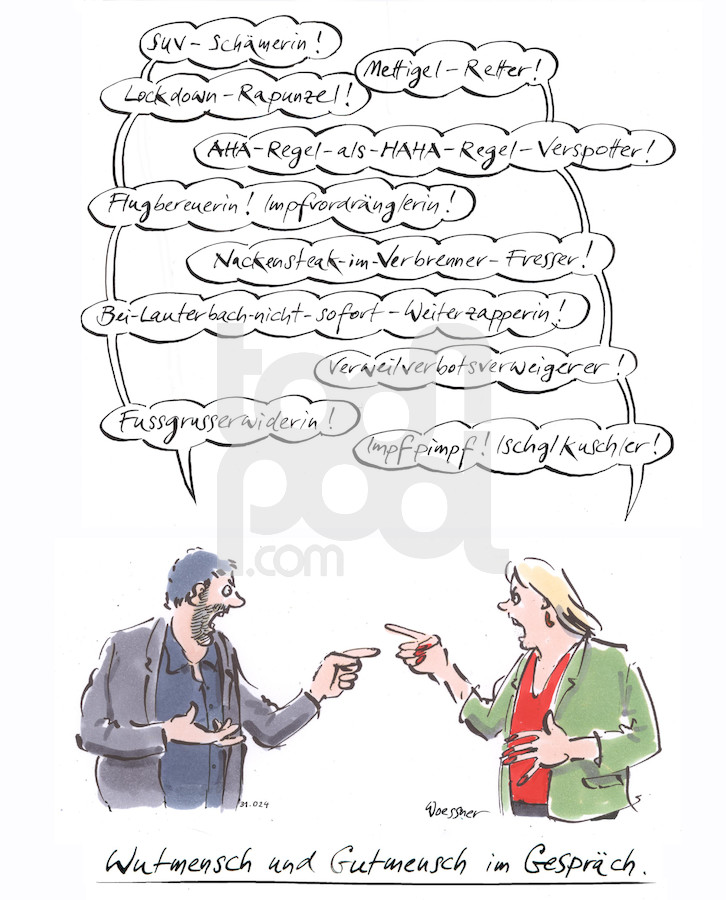 SUV-Schämerin!
Mettigel-Retter!
Lockdown-Rapunzel!
AHA-Regel-als-HAHA-Regel-Verspotter!
Flugbereuerin! Impfvordränglerin!
Nackensteak-im-Verbrenner-Fresser!
Bei-Lauterbach-nicht-sofort-Weiterzapperin!
Verweilverbotsverweigerer!
Fussgrusserwiderin!
Impfpimpf! Ischglkuschler!
toonpool.com
31.024
Woessner
Wutmensch und Gutmensch im Gespräch.